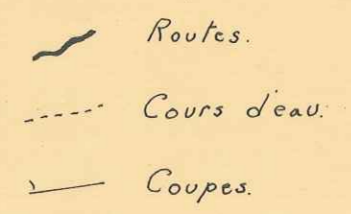 Routes.
Cours d'eau.
Coupes.